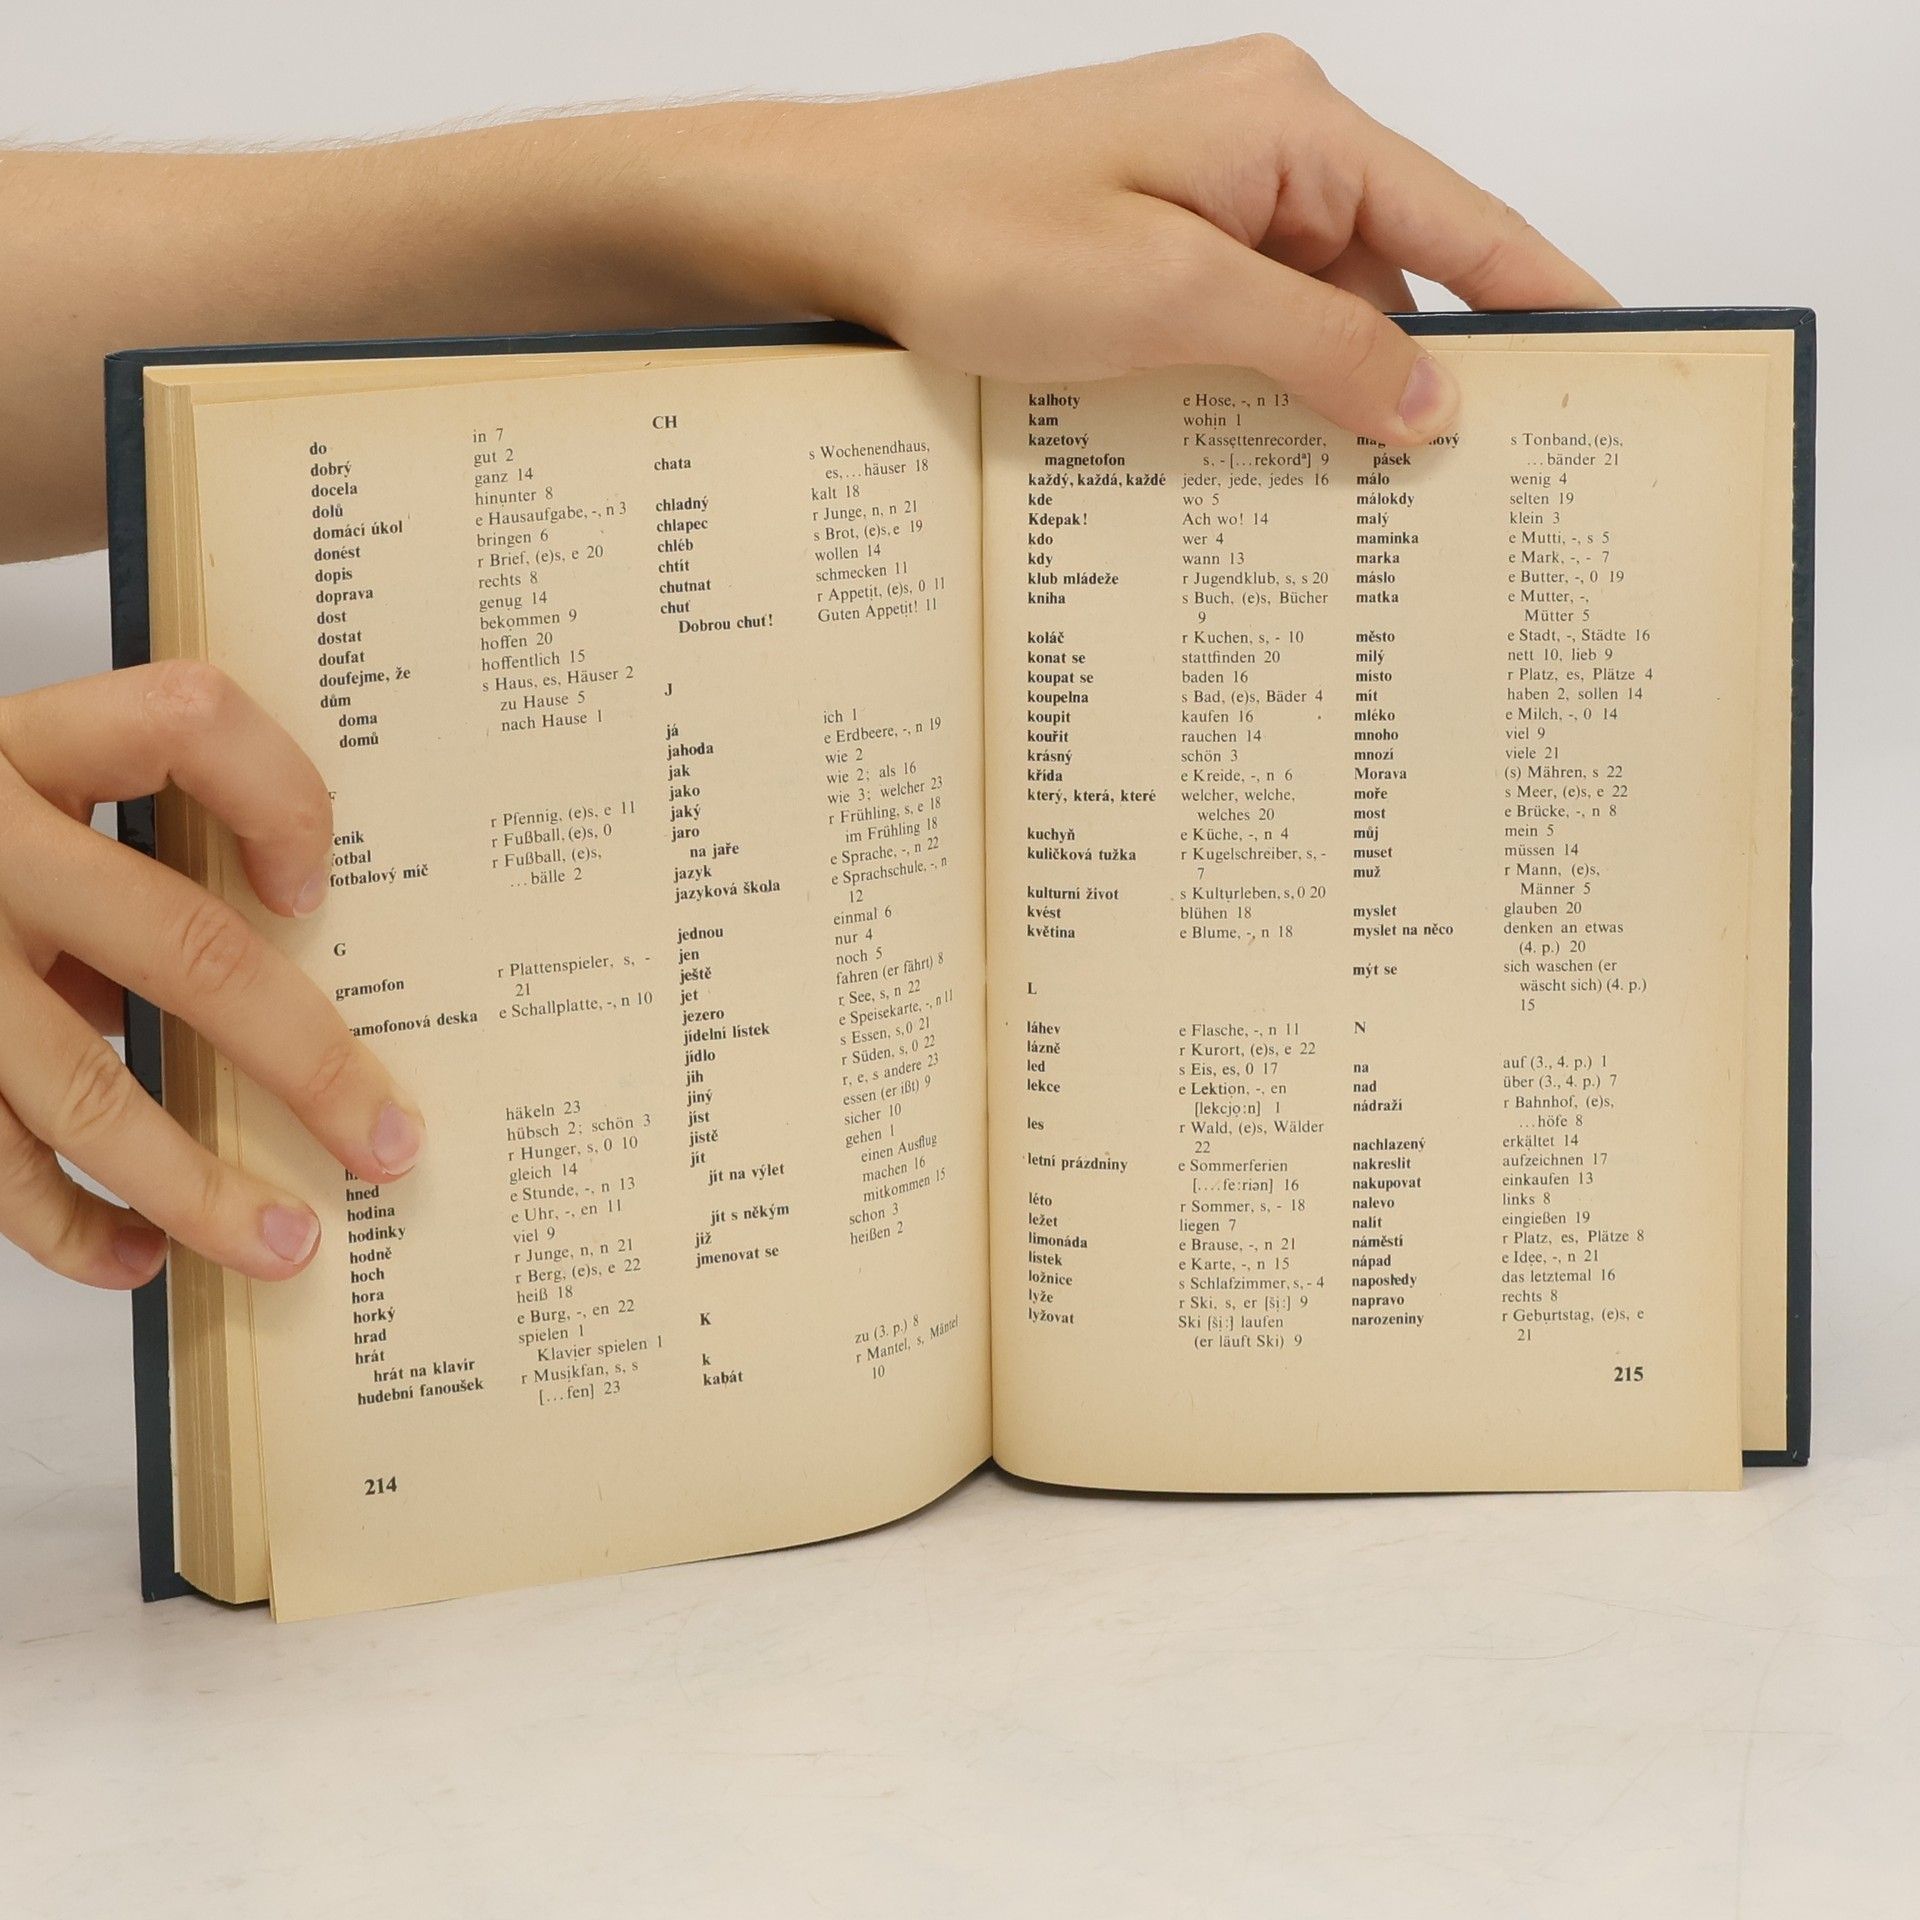 do in 7
dobrý gut 2
docela ganz 14
dolů hinunter 8
domácí úkol e Hausaufgabe, -, n 3
donést bringen 6
dopis r Brief, (e)s, e 20
doprava rechts 8
dost genug 14
dostat bekommen 9
doufat hoffen 20
doufejme, že hoffentlich 15
dům s Haus, es, Häuser 2
doma zu Hause 5
domů nach Hause 1
r Pfennig, (e)s, e 11
fotbal r Fußball, (e)s, 0
fotbalový míč r Fußball, (e)s,
...bälle 2
G
gramofon r Plattenspieler, s, -
21
deska e Schallplatte, -, n 10
häkeln 23
hübsch 2; schön 3
r Hunger, s, 0 10
hned gleich 14
hodina e Stunde, -, n 13
hodinky e Uhr, -, en 11
hodně viel 9
hoch r Junge, n, n 21
hora r Berg, (e)s, e 22
horký heiß 18
hrad e Burg, -, en 22
hrát spielen 1
hrát na klavír Klavier spielen 1
hudební fanoušek r Musikfan, s, s
[...fen] 23
214
CH
chata s Wochenendhaus,
es,...häuser 18
chladný kalt 18
chlapec r Junge, n, n 21
chléb s Brot, (e)s, e 19
chtít wollen 14
chutnat schmecken 11
chuť r Appetit, (e)s, 0 11
Dobrou chuť! Guten Appetit! 11
J
já ich 1
jahoda e Erdbeere, -, n 19
jak wie 2
jako wie 2; als 16
jaký wie 3; welcher 23
jaro r Frühling, s, e 18
na jaře im Frühling 18
jazyk e Sprache, -, n 22
jazyková škola e Sprachschule, -, n
12
jednou einmal 6
jen nur 4
ještě noch 5
jet fahren (er fährt) 8
jezero r See, s, n 22
jídelní lístek e Speisekarte, -, n 11
jídlo s Essen, s, 0 21
jih r Süden, s, 0 22
jiný r, e, s andere 23
jíst essen (er ißt) 9
jistě sicher 10
jít gehen 1
jít na výlet einen Ausflug
machen 16
jít s někým mitkommen 15
již schon 3
jmenovat se heißen 2
K
k zu (3. p.) 8
kabát r Mantel, s, Mäntel
10
kalhoty e Hose, -, n 13
kam wohin 1
kazetový r Kassettenrecorder,
magnetofon s, - [...rekordª] 9
každý, každá, každé jeder, jede, jedes 16
kde wo 5
Kdepak! Ach wo! 14
kdo wer 4
kdy wann 13
klub mládeže r Jugendklub, s, s 20
kniha s Buch, (e)s, Bücher
9
koláč r Kuchen, s, - 10
konat se stattfinden 20
koupat se baden 16
koupelna s Bad, (e)s, Bäder 4
koupit kaufen 16
kouřit rauchen 14
krásný schön 3
křída e Kreide, -, n 6
který, která, které welcher, welche,
welches 20
kuchyň e Küche, -, n 4
kuličková tužka r Kugelschreiber, s, -
7
kulturní život s Kulturleben, s, 0 20
kvést blühen 18
květina e Blume, -, n 18
L
láhev e Flasche, -, n 11
lázně r Kurort, (e)s, e 22
led s Eis, es, 0 17
lekce e Lektion, -, en
[lekcjo:n] 1
les r Wald, (e)s, Wälder
22
letní prázdniny e Sommerferien
[...fe:riən] 16
léto r Sommer, s, - 18
ležet liegen 7
limonáda e Brause, -, n 21
lístek e Karte, -, n 15
ložnice s Schlafzimmer, s, - 4
lyže r Ski, s, er [ši:] 9
lyžovat Ski [ši:] laufen
(er läuft Ski) 9
s Tonband, (e)s,
pásek ...bänder 21
málo wenig 4
málokdy selten 19
malý klein 3
maminka e Mutti, -, s 5
marka e Mark, -, - 7
máslo e Butter, -, 0 19
matka e Mutter, -,
Mütter 5
město e Stadt, -, Städte 16
milý nett 10, lieb 9
místo r Platz, es, Plätze 4
mít haben 2, sollen 14
mléko e Milch, -, 0 14
mnoho viel 9
mnozí viele 21
Morava (s) Mähren, s 22
moře s Meer, (e)s, e 22
most e Brücke, -, n 8
můj mein 5
muset müssen 14
muž r Mann, (e)s,
Männer 5
myslet glauben 20
myslet na něco denken an etwas
(4. p.) 20
mýt se sich waschen (er
wäscht sich) (4. p.)
15
N
na auf (3., 4. p.) 1
nad über (3., 4. p.) 7
nádraží r Bahnhof, (e)s,
...höfe 8
nachlazený erkältet 14
nakreslit aufzeichnen 17
nakupovat einkaufen 13
nalevo links 8
nalít eingießen 19
náměstí r Platz, es, Plätze 8
nápad e Idee, -, n 21
naposledy das letztemal 16
napravo rechts 8
narozeniny r Geburtstag, (e)s, e
21
215